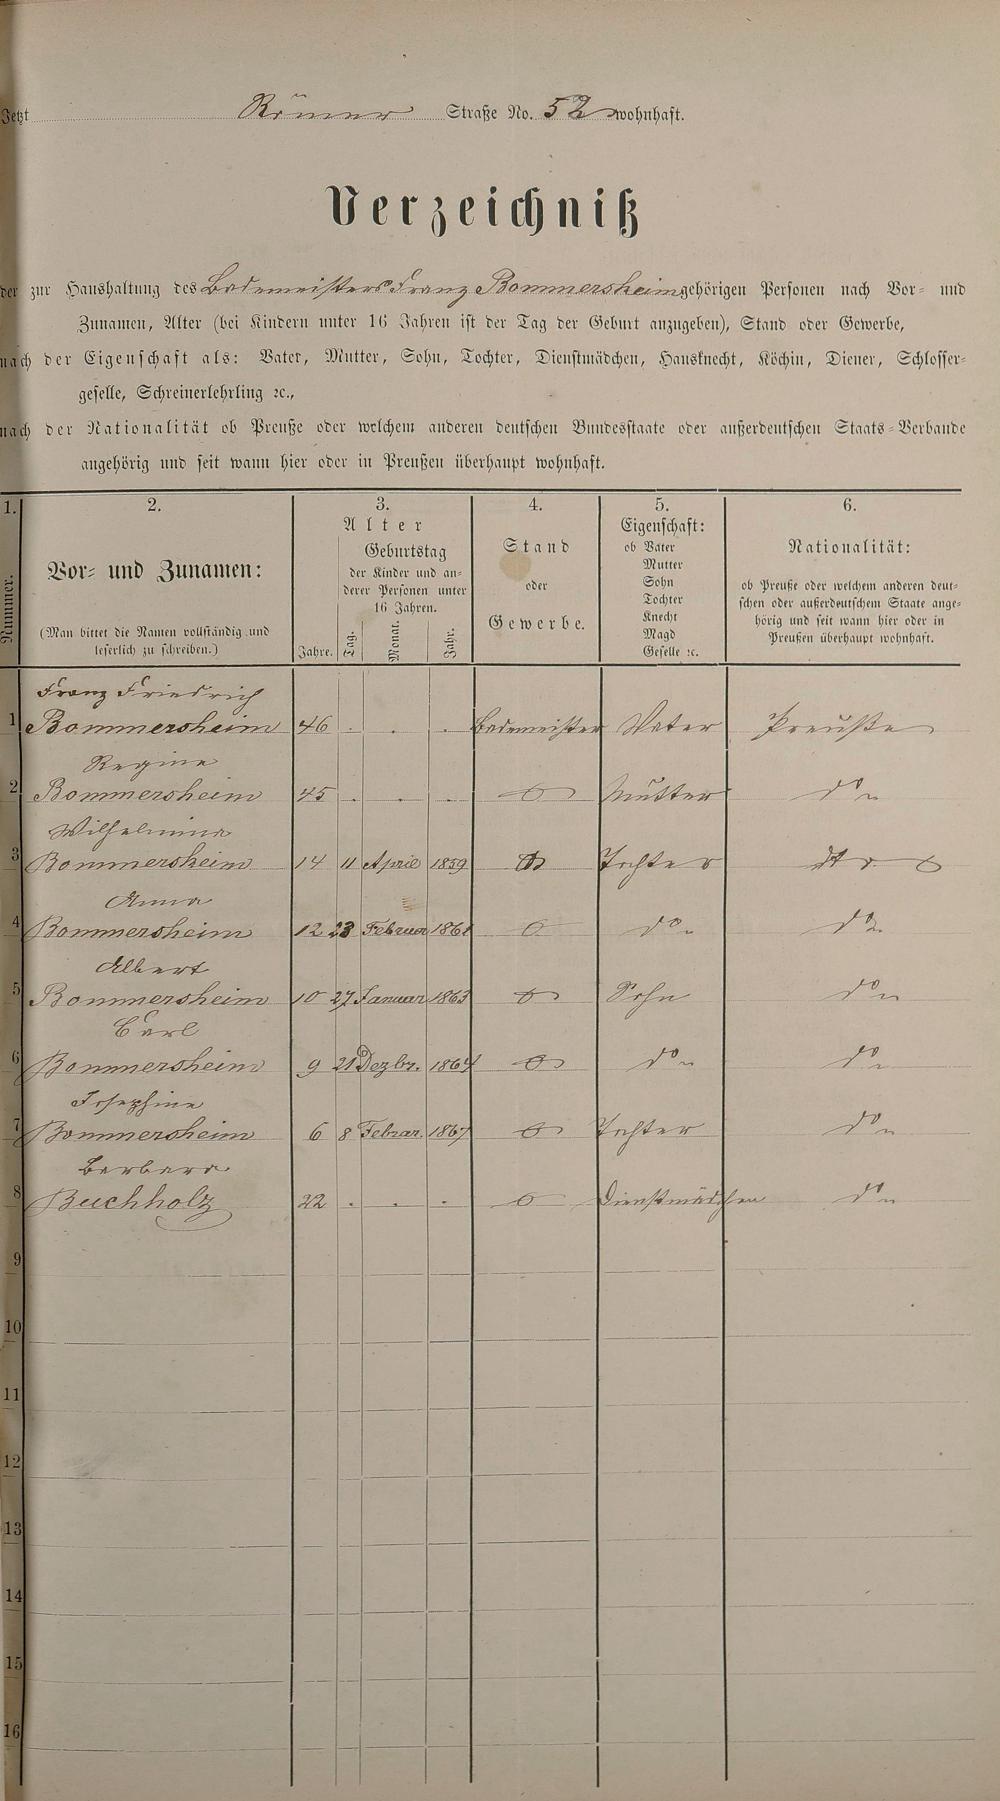 Jetzt Römer Straße No. 52 wohnhaft.
Verzeichniß
der zur Haushaltung des Bademeisters Franz Bommersheim gehörigen Personen nach Vor- und
Zunamen, Alter (bei Kindern unter 16 Jahren ist der Tag der Geburt anzugeben), Stand oder Gewerbe,
nach der Eigenschaft als: Vater, Mutter, Sohn, Tochter, Dienstmädchen, Hausknecht, Köchin, Diener, Schlosser-
geselle, Schreinerlehrling ꝛc.,
nach der Nationalität ob Preuße oder welchem anderen deutschen Bundesstaate oder außerdeutschen Staats-Verbande
angehörig und seit wann hier oder in Preußen überhaupt wohnhaft.
1. 2. 3. 4. 5. 6.
Nummer.
Vor- und Zunamen:
(Man bittet die Namen vollständig und
leserlich zu schreiben.)
Alter
Geburtstag
der Kinder und an-
derer Personen unter
16 Jahren.
Jahre. Tag. Monat. Jahr.
Stand
oder
Gewerbe.
Eigenschaft:
ob Vater
Mutter
Sohn
Tochter
Knecht
Magd
Geselle ꝛc.
Nationalität:
ob Preuße oder welchem anderen deut-
schen oder außerdeutschem Staate ange-
hörig und seit wann hier oder in
Preußen überhaupt wohnhaft.
Franz Friedrich
1 Bommersheim 46 . . . Bademeister Vater Preuße
Regine
2 Bommersheim 45 . . . Mutter do
Wilhelmina
3 Bommersheim 14 11 April 1859 Tochter
Anna
4 Bommersheim 12 23 Februar 1861 do do
Albert
5 Bommersheim 10 27 Januar 1863 Sohn do
Carl
6 Bommersheim 9 21 Dezbr. 1864 do do
Josephine
7 Bommersheim 6 8 Februar. 1867 Tochter do
Barbara
8 Buchholz 22 . . . Dienstmädchen do
9
10
11
12
13
14
15
16